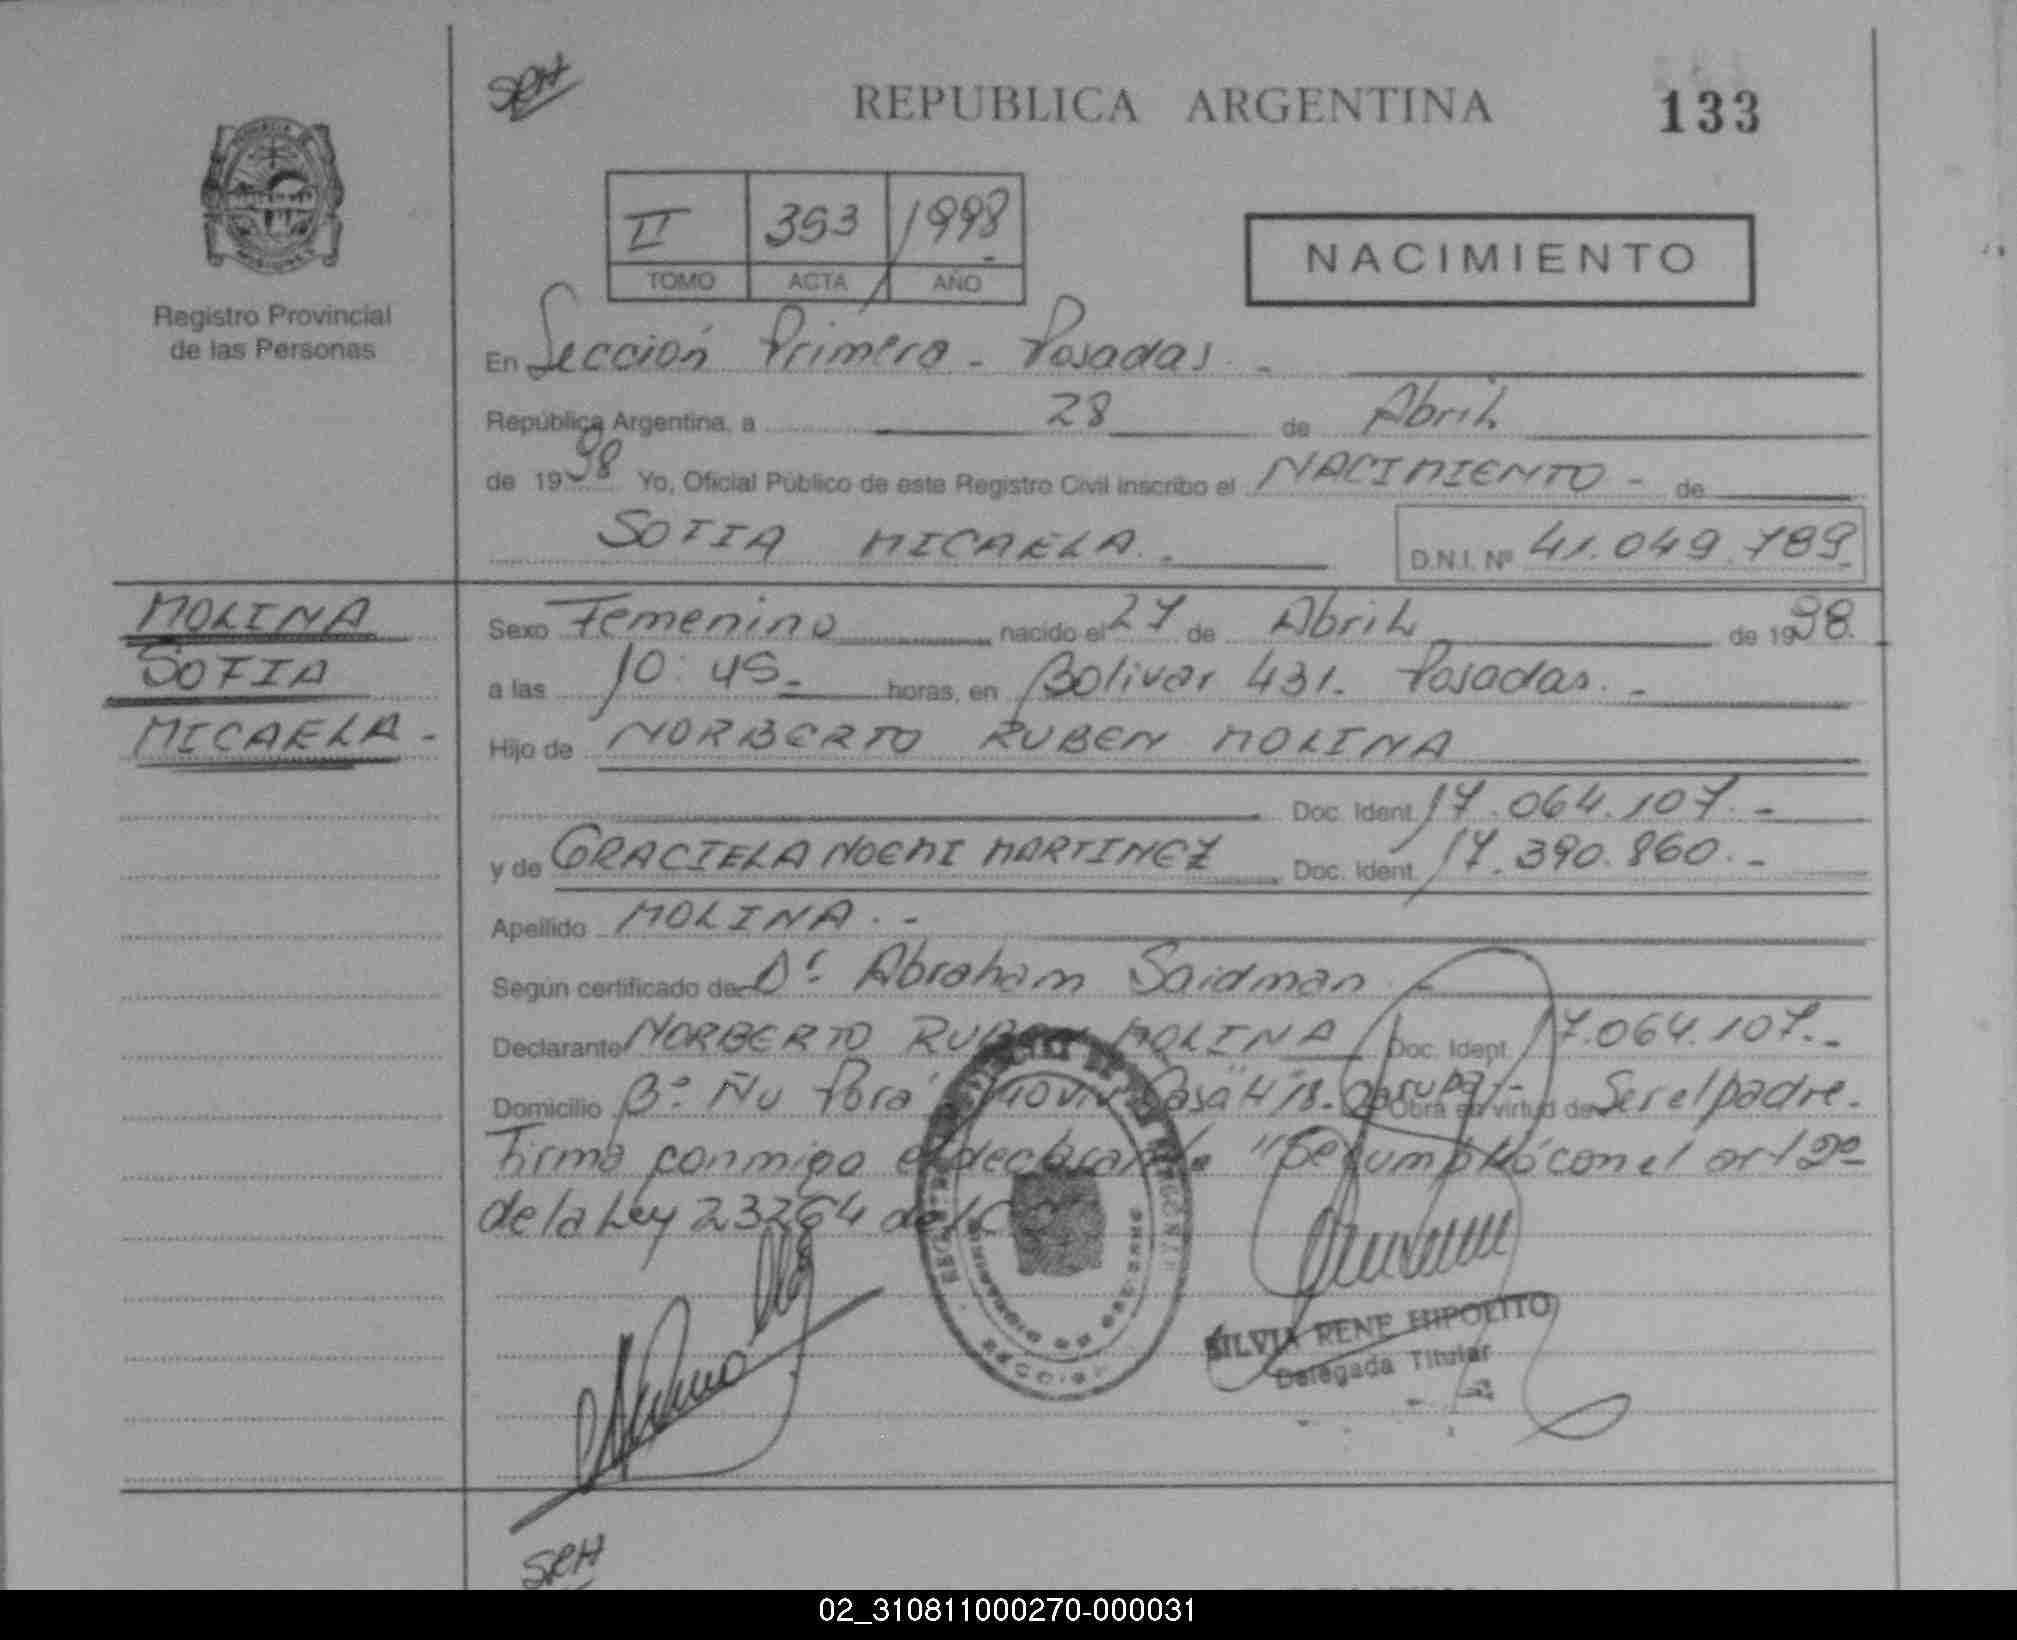 SRH
REPUBLICA ARGENTINA
133
II 353 1998
TOMO ACTA AÑO
NACIMIENTO
Registro Provincial
de las Personas
En Sección Primera - Posadas. -
República Argentina, a 28 de Abril
de 1998 Yo, Oficial Público de este Registro Civil inscribo el NACIMIENTO - de
SOFIA MICAELA. - D.N.I. Nº 41.049.789
MOLINA
SOFIA
MICAELA -
Sexo Femenino nacido el 27 de Abril de 1998.
a las 10:45.- horas, en Bolivar 431. Posadas. -
Hijo de NORBERTO RUBEN MOLINA
Doc. Ident. 17.064.107.-
y de GRACIELA NOEMI MARTINEZ Doc. Ident. 17.390.860.-
Apellido MOLINA. -
Según certificado de Dr. Abraham Saidman -
Declarante NORBERTO RUBEN MOLINA Doc. Ident. 17.064.107.-
Domicilio Bº Ñu Porá Casa 418. Garupá.- Obra en virtud de Ser el padre.
Firma conmigo el declarante "Se cumplió con el art 2º
de la Ley 23264 del
SILVIA RENE HIPOLITO
Delegada Titular
SRH
02_310811000270-000031